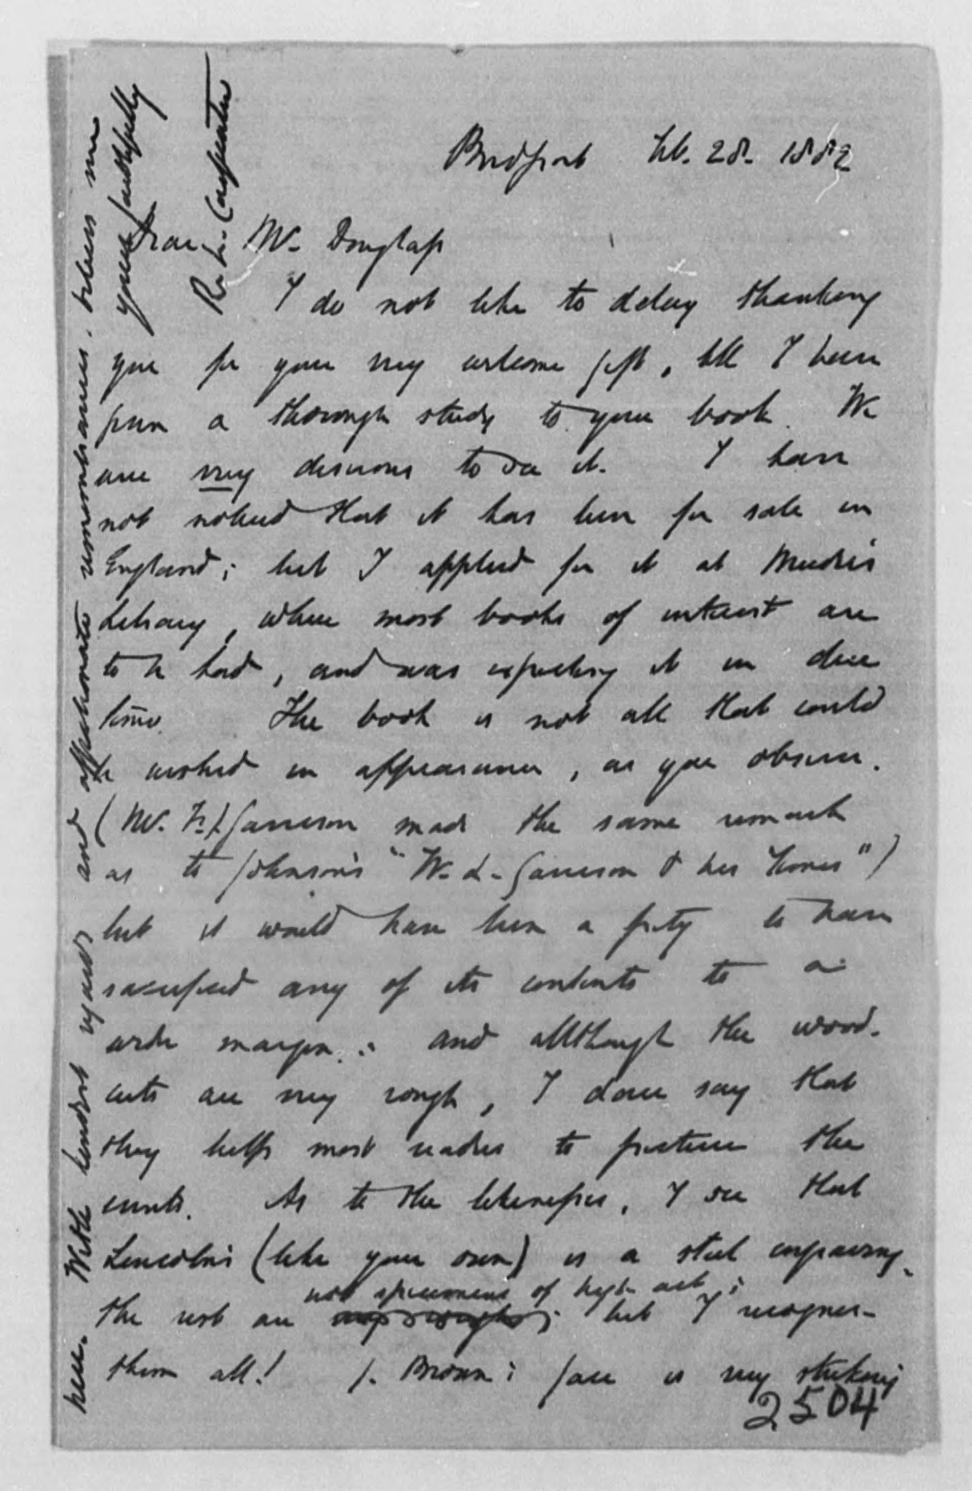 Bridport Feb. 28. 1882
Dear Mr. Douglass
I do not like to delay thanking
you for your very welcome gift, till I have
given a thorough study to your book. We
are very desirous to see it. I have
not noticed that it has been for sale in
England; but I applied for it at Mudie's
Library, where most books of interest are
to be had, and was expecting it in due
time. The book is not all that could
be wished in appearance, as you observe.
(Mr. F. J. Garrison made the same remark
as to Johnson's "W. L. Garrison & his Times")
but it would have been a pity to have
sacrificed any of its contents to a
wide margin: and allthough the wood-
cuts are very rough, I dare say that
they help most readers to picture the
events. As to the likenesses, I see that
Lincoln's (like your own) is a steel engraving,
not specimens of high art;
the rest are but I recognise
them all! J. Brown's face is very striking
2504
here. With kindest regards and affectionate remembrances, believe me
yours faithfully
R. L. Carpenter